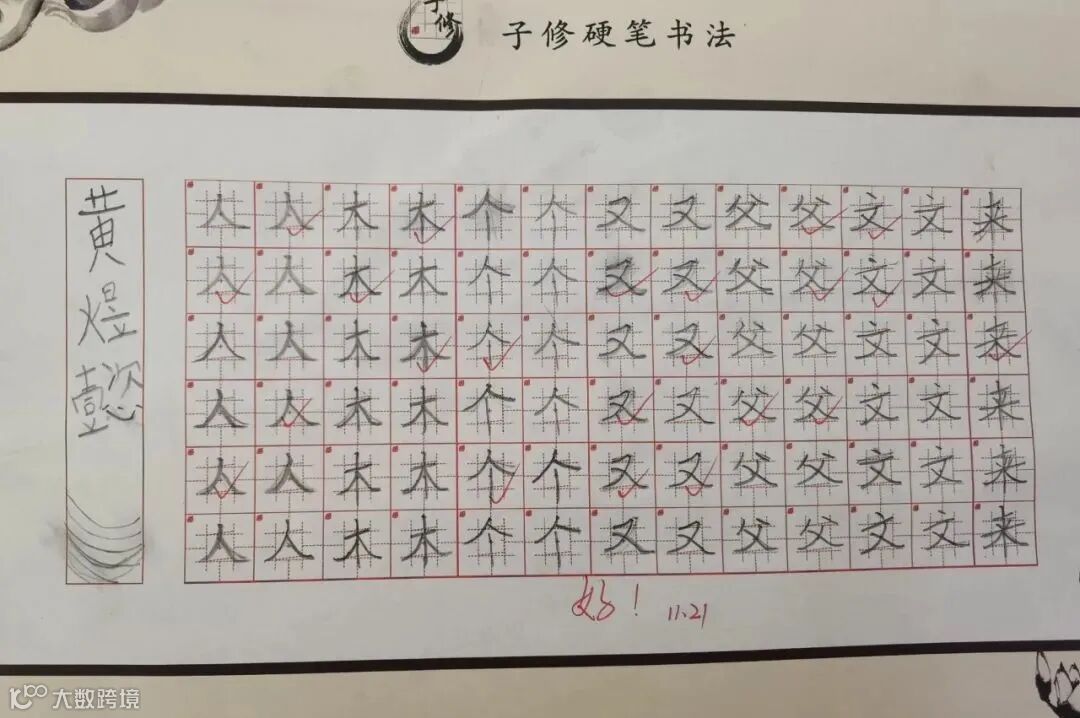 子修
子修硬笔书法
黄煜懿
人人木木个个又又父父文文来
人人木木个个又又父父文文来
人人木木个个又又父父文文来
人人木木个个又又父父文文来
人人木木个个又又父父文文来
人人木木个个又又父父文文来
好! 11.21
大数跨境